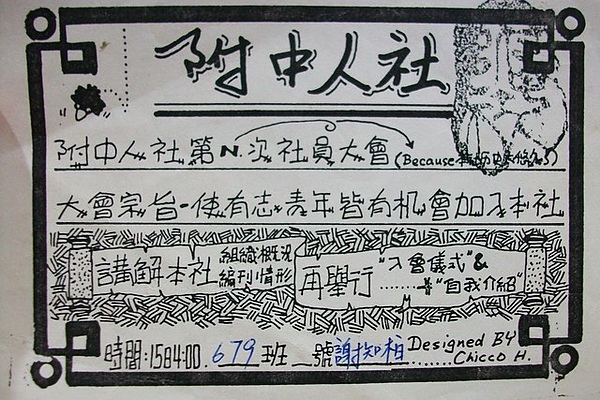 附中人社
附中人社第N次社員大會(Because本社歷史太悠久)
大會宗旨-使有志青年皆有机會加入本社
講解本社 組織概況 編刊情形 再舉行 "入會儀式"& "自我介紹"
時間:1584:00. 679班 號謝知柏 Designed BY Chicco H.